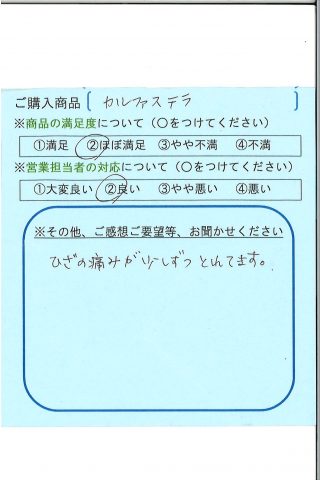 ご購入商品〔 カルファステラ 〕
※商品の満足度について(○をつけてください)
①満足 ②ほぼ満足 ③やや不満 ④不満
※営業担当者の対応について(○をつけてください)
①大変良い ②良い ③やや悪い ④悪い
※その他、ご感想ご要望等、お聞かせください
ひざの痛みが少しずつとれてます。